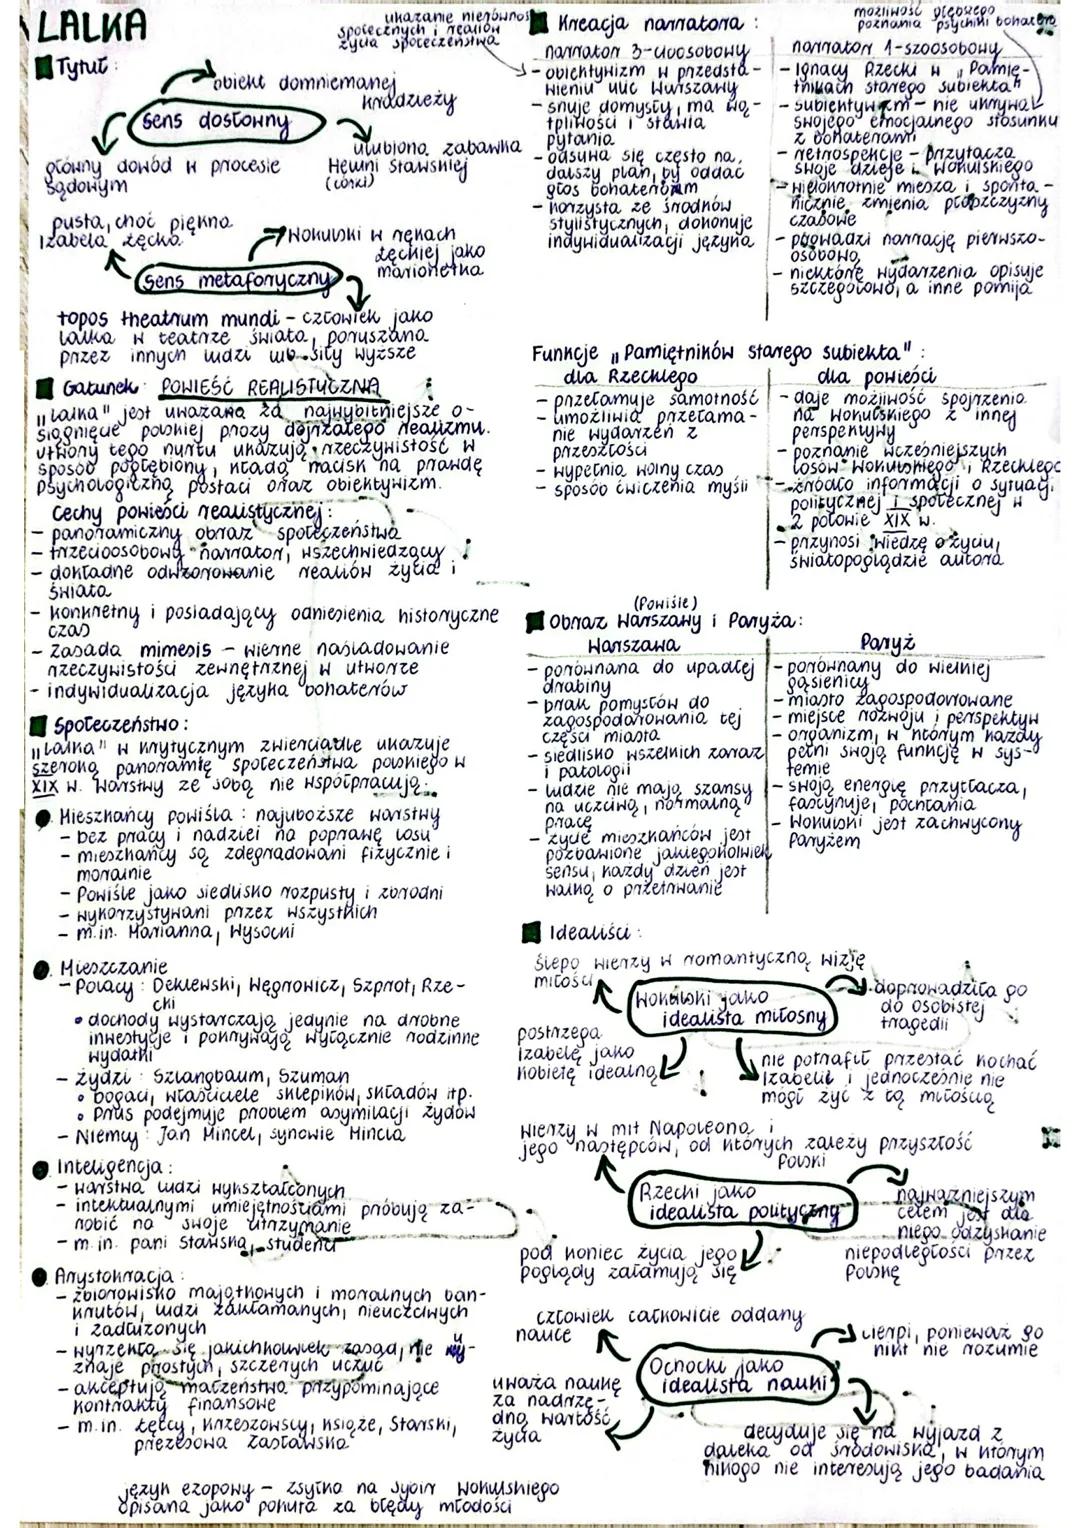 LALKA
Tytuł:
sens dosłowny
obiekt domniemanej
kradzieży
główny dowód w procesie
sądowym
ulubiona zabawka
Heluni Stawskiej
(córki)
pusta, choć piękna
Izabela Łęcka
Wokulski w rękach
Łęckiej jako
marionetka
sens metaforyczny
topos theatrum mundi - człowiek jako
lalka w teatrze świata, poruszana
przez innych ludzi lub siły wyższe
Gatunek: POWIEŚĆ REALISTYCZNA
"Lalka" jest uważana za najwybitniejsze o-
siągnięcie polskiej prozy dojrzałego realizmu.
Utwory tego nurtu ukazują rzeczywistość w
sposób pogłębiony, kładą nacisk na prawdę
psychologiczną postaci oraz obiektywizm.
Cechy powieści realistycznej:
- panoramiczny obraz społeczeństwa
- trzecioosobowy narrator, wszechwiedzący
- dokładne odwzorowanie realiów życia i
świata
- konkretny i posiadający odniesienia historyczne
czas
- zasada mimesis - wierne naśladowanie
rzeczywistości zewnętrznej w utworze
- indywidualizacja języka bohaterów
Społeczeństwo:
"Lalka" w krytycznym zwierciadle ukazuje
szeroką panoramię społeczeństwa polskiego w
XIX w. Warstwy ze sobą nie współpracują.
Mieszkańcy powiśla: najuboższe warstwy
- bez pracy i nadziei na poprawę losu
- mieszkańcy są zdegradowani fizycznie i
moralnie
- Powiśle jako siedlisko rozpusty i zbrodni
- wykorzystywani przez wszystkich
- m.in. Marianna, Wysocki
Mieszczanie
- Polacy: Deklewski, Węgrowicz, Szprot, Rze-
cki
• dochody wystarczają jedynie na drobne
inwestycje i pokrywają wyłącznie rodzinne
wydatki
- żydzi: Szlangbaum, Szuman
• bogaci, właściciele sklepików, składów itp.
• Prus podejmuje problem asymilacji żydów
- Niemcy: Jan Mincel, synowie Mincla
Inteligencja:
- warstwa ludzi wykształconych
- intelektualnymi umiejętnościami próbują za-
robić na swoje utrzymanie
- m.in. pani Stawska, studenci
Arystokracja:
- zbiorowisko majątkowych i moralnych ban-
krutów, ludzi zakłamanych, nieuczciwych
i zadłużonych
- wyrzekło się jakichkolwiek zasad, nie u-
znaje prostych, szczerych uczuć
- akceptują małżeństwa przypominające
kontrakty finansowe
- m.in. Łęccy, Krzeszowscy, książę, Starski,
prezesowa Zasławska
język ezopowy - zsyłka na Sybir Wokulskiego
opisana jako pokuta za błędy młodości
ukazanie nierówności
społecznych i realiów
życia społeczeństwa
Kreacja narratora:
możliwość głębszego
poznania psychiki bohatera
narrator 3-osobowy
- obiektywizm w przedsta-
wieniu ulic Warszawy
- snuje domysły, ma wą-
tpliwości i stawia
pytania
- odsuwa się często na
dalszy plan, by oddać
głos bohaterom
- korzysta ze środków
stylistycznych, dokonuje
indywidualizacji języka
narrator 1-szoosobowy
- Ignacy Rzecki w "Pamię-
tnikach starego subiekta"
- subiektywizm - nie ukrywa
swojego emocjonalnego stosunku
z bohaterami
- retrospekcje - przytacza
swoje dzieje i Wokulskiego
- wielokrotnie miesza i sponta-
nicznie zmienia płaszczyzny
czasowe
- prowadzi narrację pierwszo-
osobową
- niektóre wydarzenia opisuje
szczegółowo, a inne pomija
Funkcje "Pamiętników starego subiekta":
dla Rzeckiego
- przełamuje samotność
- umożliwia przełama-
nie wydarzeń z
przeszłości
- wypełnia wolny czas
- sposób ćwiczenia myśli
dla powieści
- daje możliwość spojrzenia
na Wokulskiego z innej
perspektywy
- poznanie wcześniejszych
losów Wokulskiego i Rzeckiego
- źródło informacji o sytuacji
politycznej i społecznej w
2 połowie XIX w.
- przynosi wiedzę o życiu,
światopoglądzie autora
(Powiśle)
Obraz Warszawy i Paryża:
Warszawa
- porównana do upadłej
drabiny
- brak pomysłów do
zagospodarowania tej
części miasta
- siedlisko wszelkich zaraz
i patologii
- ludzie nie mają szansy
na uczciwą, normalną
pracę
- życie mieszkańców jest
pozbawione jakiegokolwiek
sensu, każdy dzień jest
walką o przetrwanie
Paryż
- porównany do wielkiej
gąsienicy
- miasto zagospodarowane
- miejsce rozwoju i perspektyw
- organizm, w którym każdy
pełni swoją funkcję w sys-
temie
- swoją energią przytłacza,
fascynuje, pochłania
- Wokulski jest zachwycony
Paryżem
Idealiści:
ślepo wierzy w romantyczną wizję
miłości
Wokulski jako
idealista miłosny
doprowadziła go
do osobistej
tragedii
postrzega
Izabelę jako
kobietę idealną
nie potrafił przestać kochać
Izabeli i jednocześnie nie
mógł żyć z tą miłością
wierzy w mit Napoleona i
jego następców, od których zależy przyszłość
Polski
Rzecki jako
idealista polityczny
najważniejszym
celem jest dla
niego odzyskanie
niepodległości przez
Polskę
pod koniec życia jego
poglądy załamują się
człowiek całkowicie oddany
nauce
Ochocki jako
idealista nauki
cierpi, ponieważ go
nikt nie rozumie
uważa naukę
za nadrzę-
dną wartość
życia
decyduje się na wyjazd z
daleka od środowiska, w którym
nikogo nie interesują jego badania